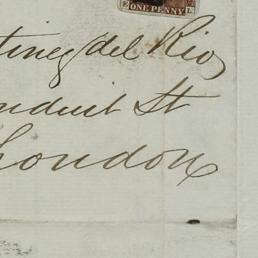 E ONE PENNY L
tinez del Rio
nduit St
London